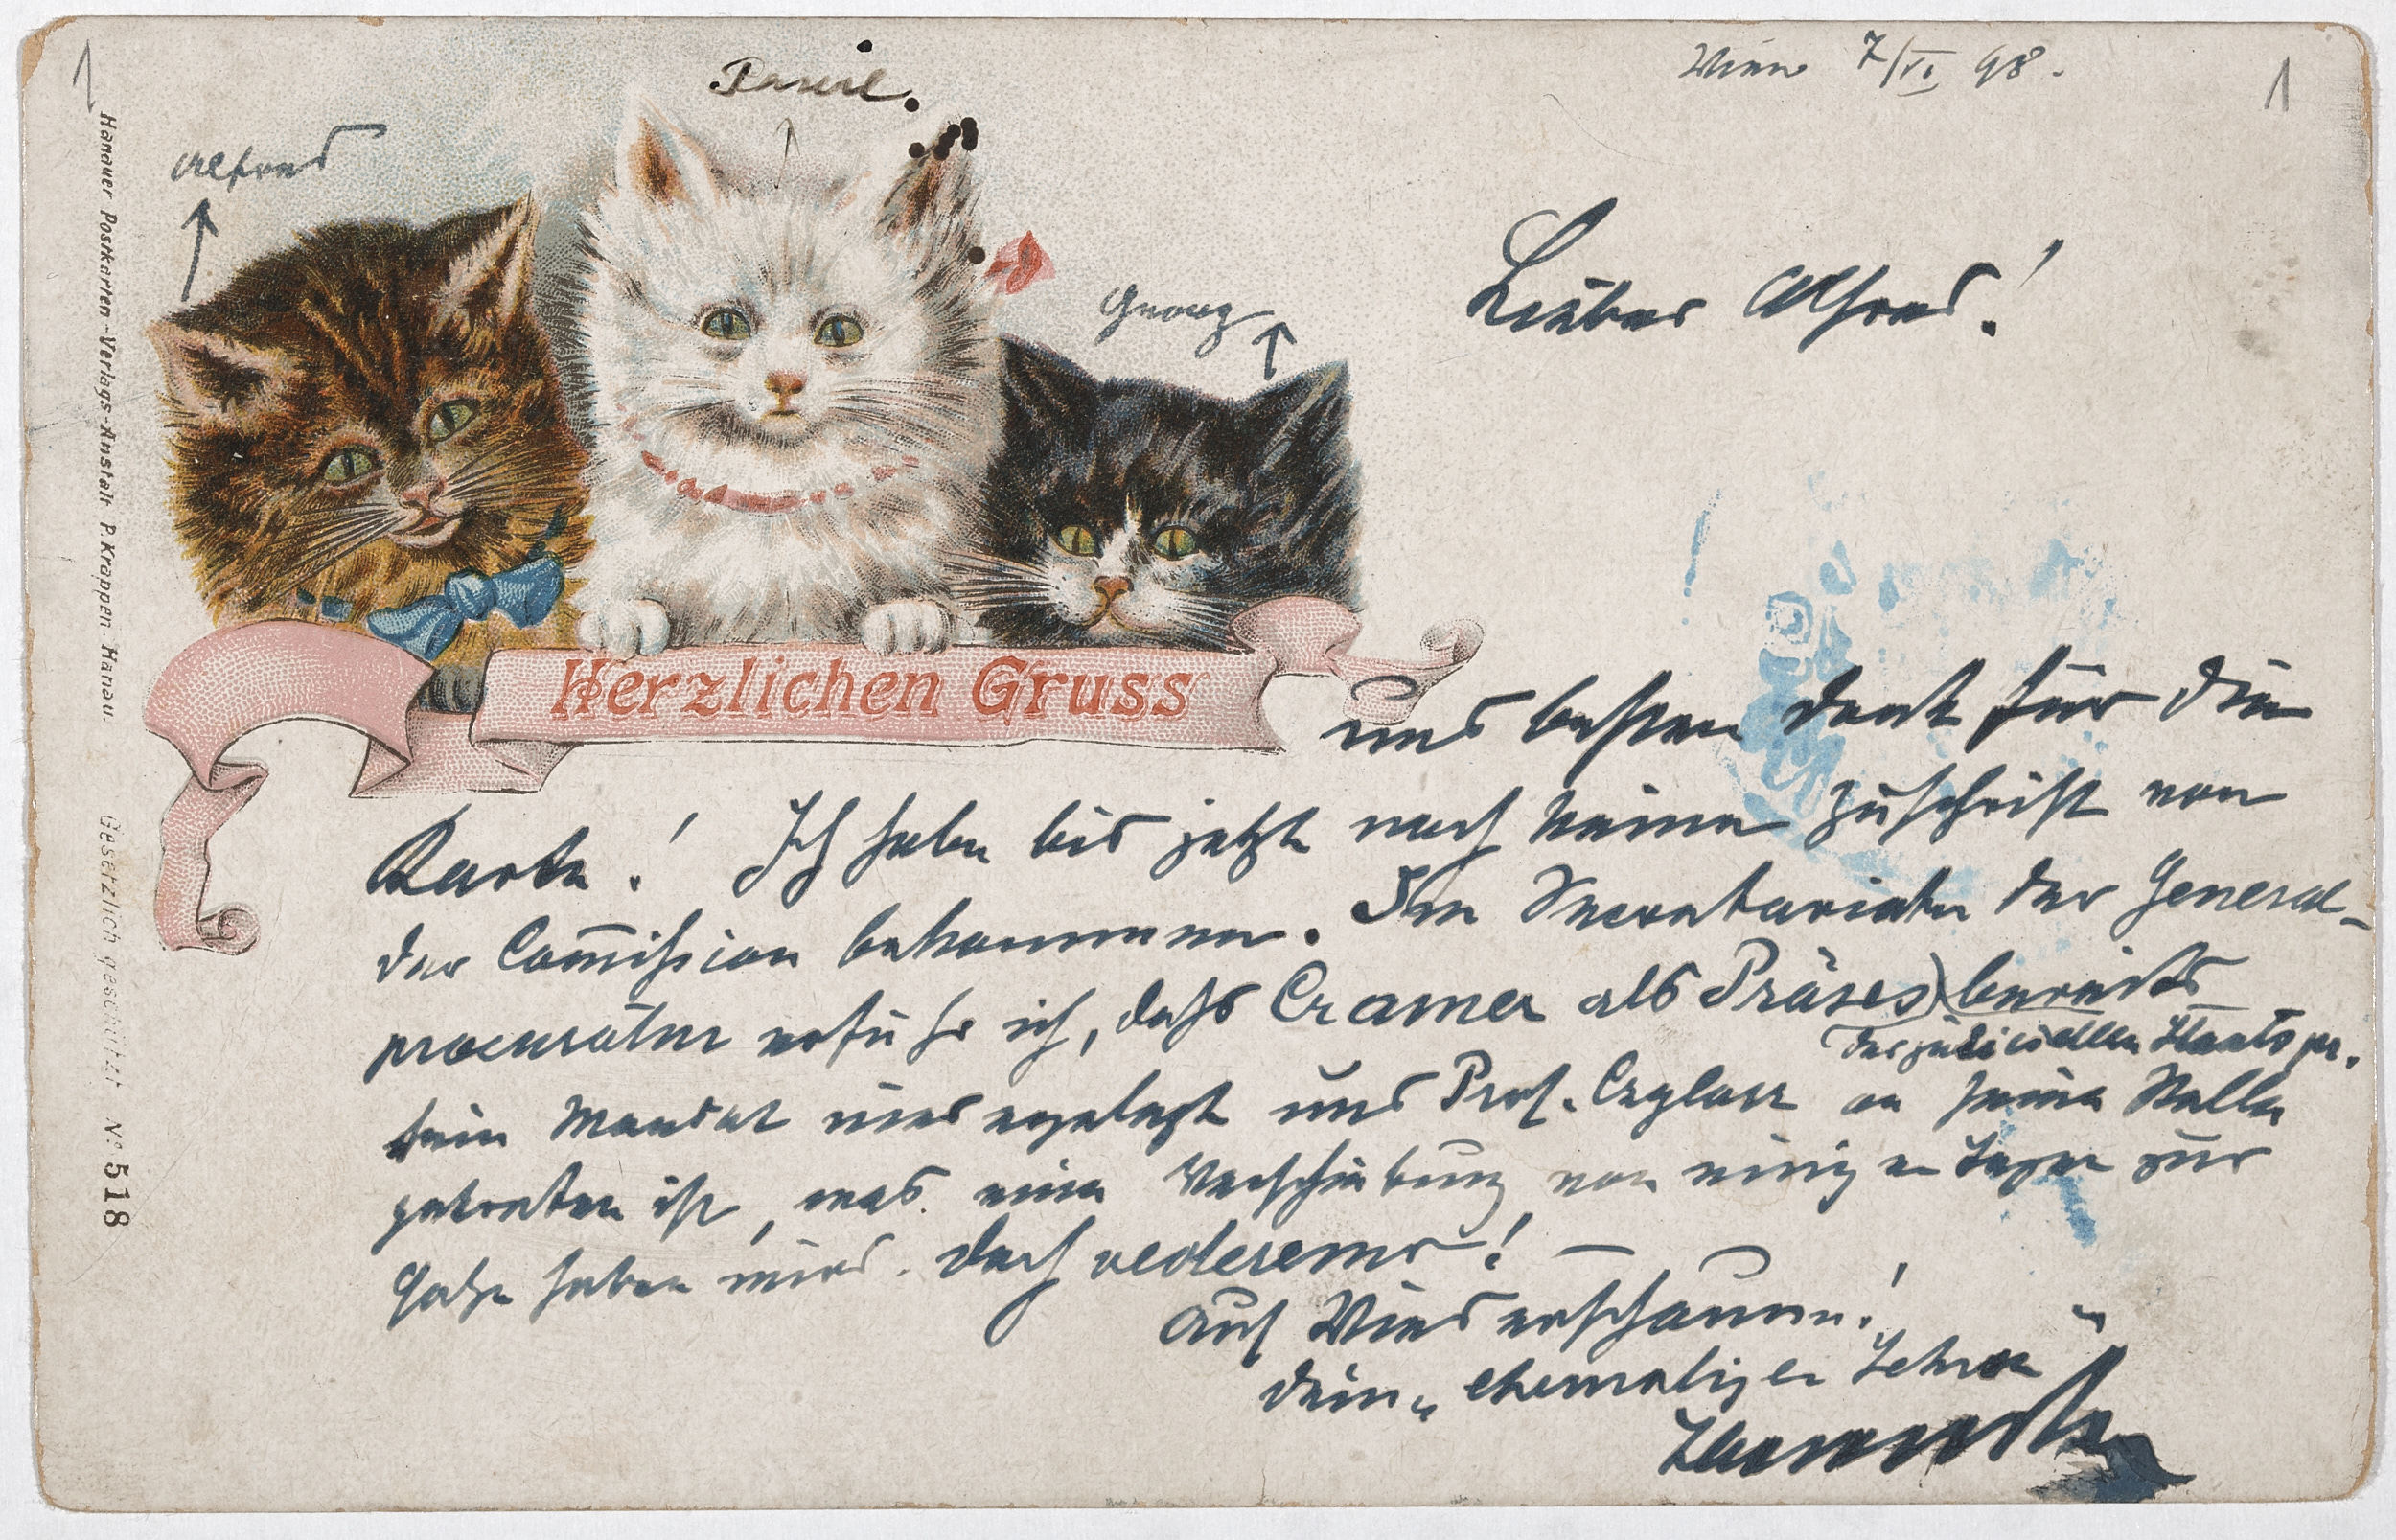 Wien 7/VI 98.
1
1
Paul.
Alfred
Georg
Lieber Alfred!
Herzlichen Gruss
und besten Dank für die
Karte! Ich habe bis jetzt noch keine Zuschrift von
der Com̄ission bekommen. Im Secretariate der General-
procuratur erfuhr ich, daß Cramer als Präses) bereits
der judiciellen Staatspr.
sein Mandat niedergelegt und Prof. an seine Stelle
getreten ist, was eine Verschiebung von einigen Tagen zur
Folge haben wird. Doch vederemo! —
Auf Wiederschauen!
Dein „ehemaliger Lehrer“
Hanauer Postkarten-Verlags-Anstalt P. Krappen-Hanau.
Gesetzlich geschützt No 518